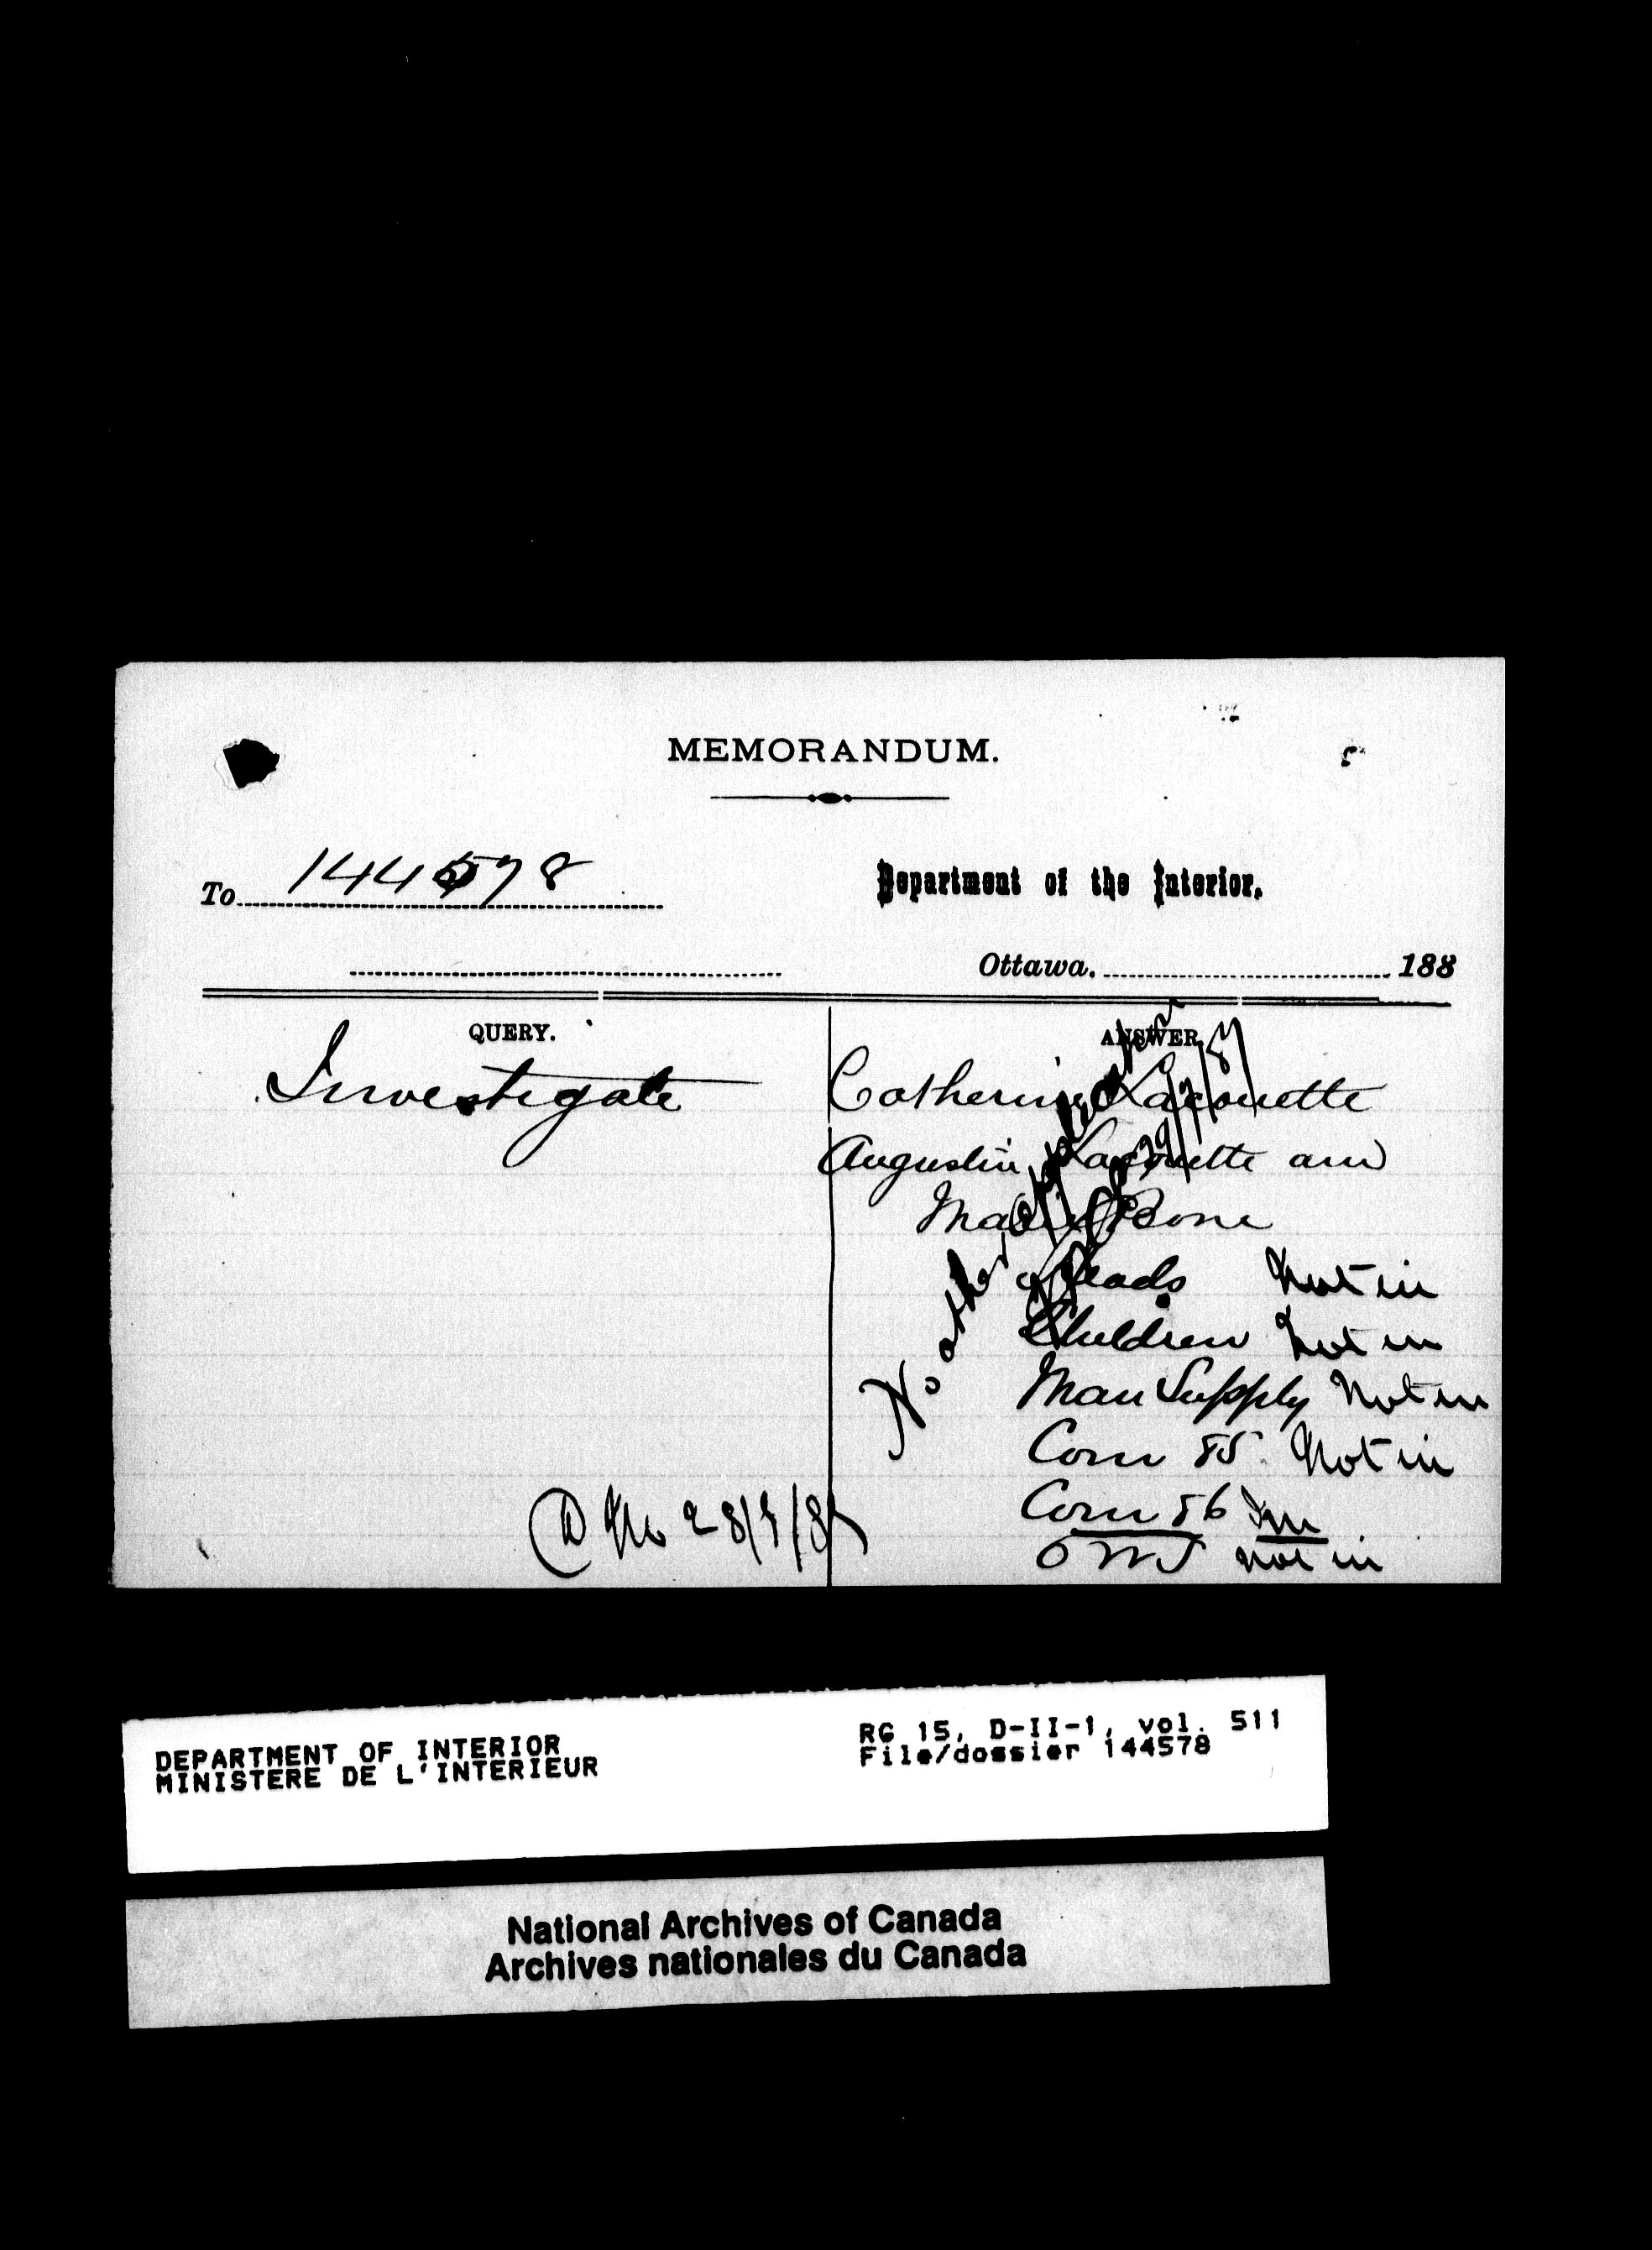 MEMORANDUM.
To 144578
Department of the Interior.
Ottawa. 188
QUERY.
Investigate
ANSWER.
Catherine Lacouette
Augustin Lacouette and
Marie Bone
Heads Not in
Children Not in
Man Supply Not in
Com 85 Not in
Com 86 In
NWT not in
No other
28/9/87
DEPARTMENT OF INTERIOR
MINISTERE DE L'INTERIEUR
RG 15, D-II-1, vol. 511
File/dossier 144578
National Archives of Canada
Archives nationales du Canada